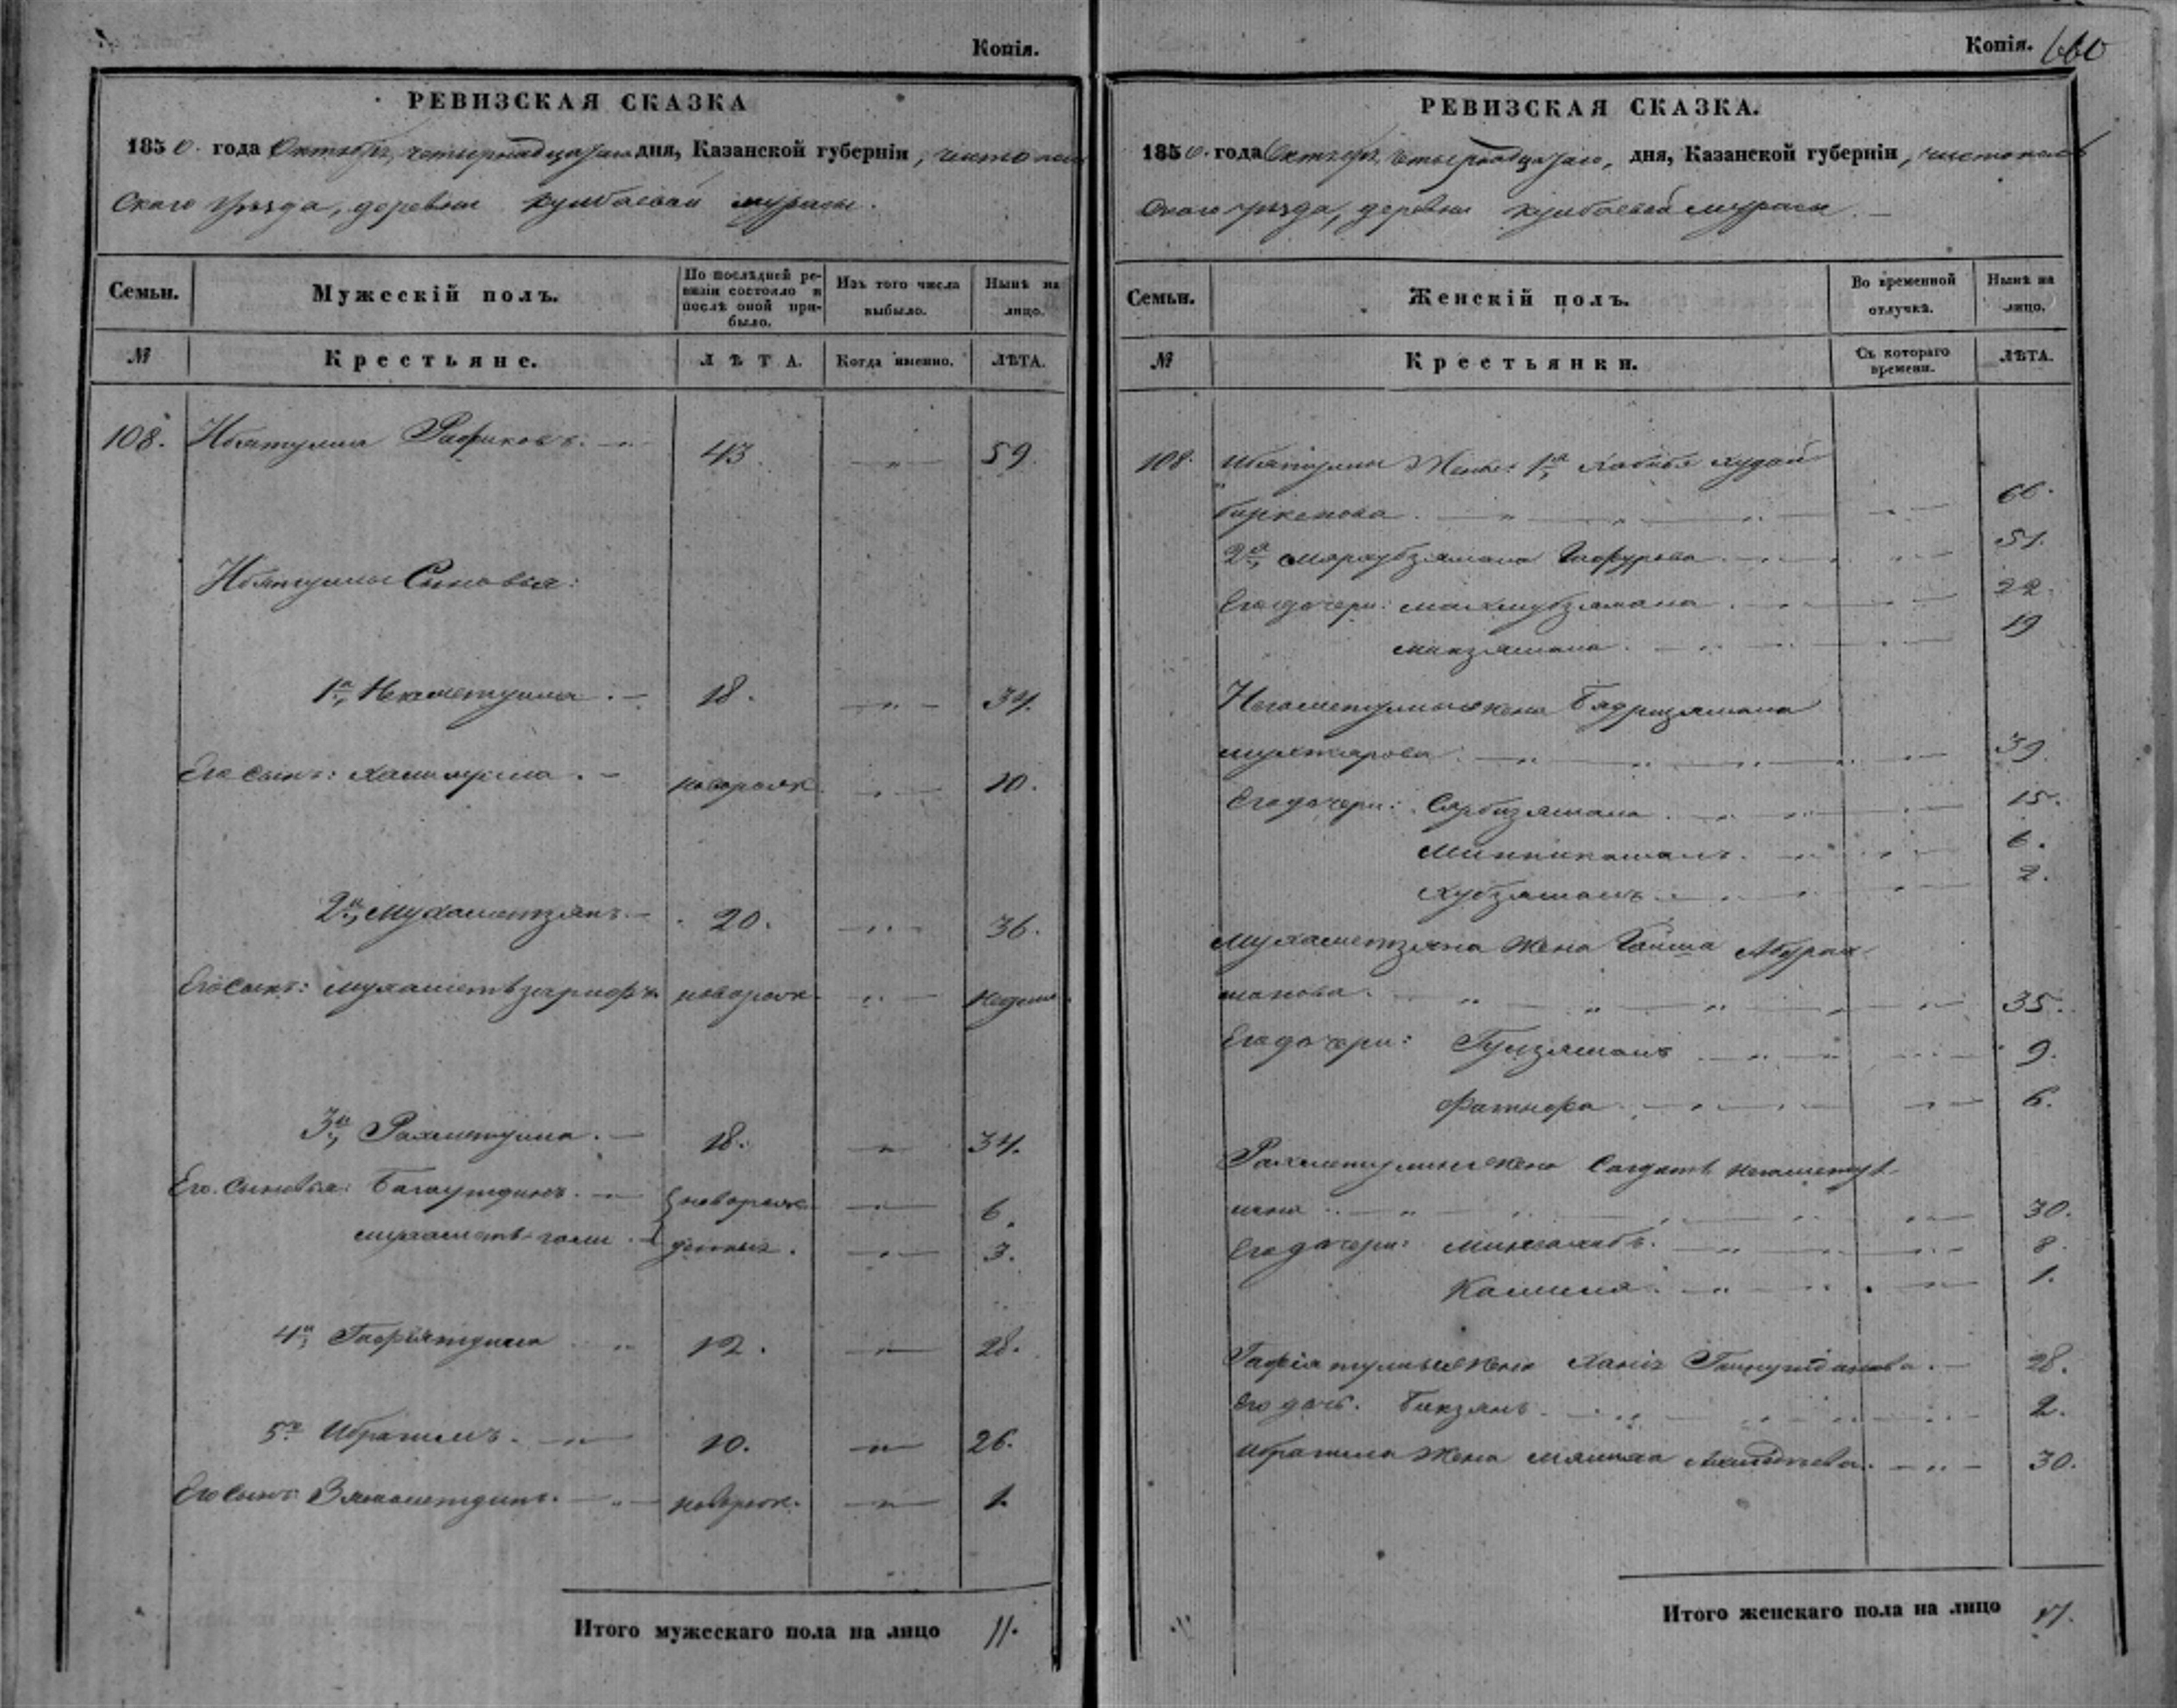 Копія.
РЕВИЗСКАЯ СКАЗКА
1850. года Октября четырнадцатаго дня, Казанской губерніи, чистополь
скаго уѣзда, деревни кулбаевой мурасы.
Семьи.
Мужескій полъ.
По послѣдней ре-
визіи состояло и
послѣ оной при-
было.
Изъ того числа
выбыло.
Нынѣ на
лицо.
№
Крестьяне.
ЛѢТА.
Когда именно.
ЛѢТА.
108. Ибятулла Рафиковъ. 43. 59.
Ибятуллы Сыновья:
1й, Некаметулла. 18. 34.
Его сынъ: Халиулла. новорож. 10.
2й, Мухаметзянъ. 20. 36.
Его сынъ: Мухаметьзарифъ. новорож. недели.
3й, Рахметулла. 18. 34.
Его Сыновья: Багаутдинъ. новорож 6.
мухаметь-гали. денныя. 3.
4й, Гафіятулла 12. 28.
5й Ибрагимъ. 10. 26.
Его сынъ Зямалетдинъ. новорож. 1.
Итого мужескаго пола на лицо 11.
Копія. 660
РЕВИЗСКАЯ СКАЗКА.
1850. года Октября четырнадцатаго, дня, Казанской губерніи, чистополь
скаго уѣзда, деревни кулбаевой мурасы.
Семьи.
Женскій полъ.
Во временной
отлучкѣ.
Нынѣ на
лицо.
№
Крестьянки.
Съ котораго
времени.
ЛѢТА.
108. Ибятуллы Жены: 1я, Хабибя Худай-
бирженова. 66.
2я, Мархубзямала Гафурова 51.
Его дочери: махмубзямала 22.
минзямала. 19
Негаметуллы жена Бадризямала
мухтарова. 39.
Его дочери: Сарбизямала. 15.
Минникамалъ. 6.
Хубзямалъ. 2.
Мухаметзяна жена Гайша Абдрах-
манова. 35.
Его дочери: Гулзямалъ 9.
Фатнафа. 6.
Рахметуллы жена Сагдатъ негаметул-
лина 30.
Его дочери: минсахибъ. 8.
Камиля. 1.
Гафіятуллы жена Ханія Гайнутдинова. 28.
Его дочь. Бикзянъ. 2.
Ибрагима жена мялика 30.
Итого женскаго пола на лицо 17.